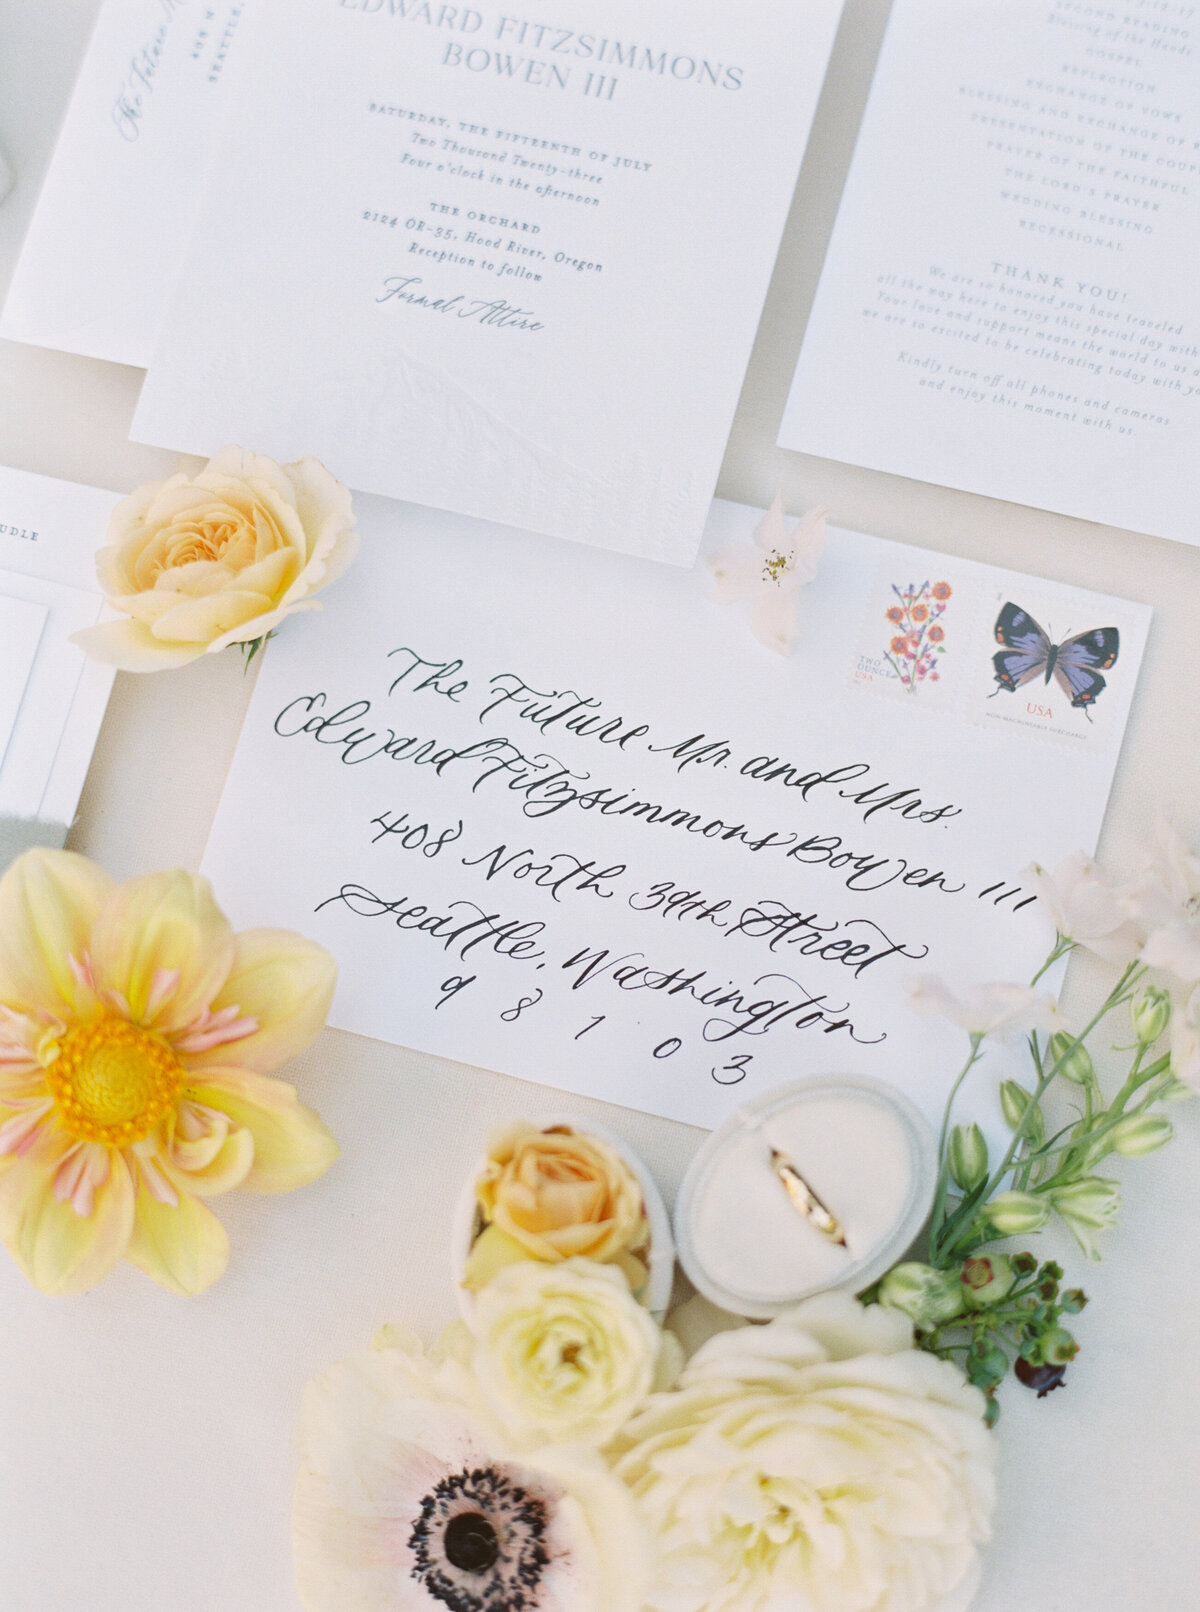 The Future M
408 N
SEATTLE,
EDWARD FITZSIMMONS
BOWEN III
SATURDAY, THE FIFTEENTH OF JULY
Two Thousand Twenty-three
Four o'clock in the afternoon
THE ORCHARD
2124 OR-35, Hood River, Oregon
Reception to follow
Formal Attire
SECOND READING
Blessing of the Hands
GOSPEL
REFLECTION
EXCHANGE OF VOWS
BLESSING AND EXCHANGE OF R
PRESENTATION OF THE COUPL
PRAYER OF THE FAITHFUL
THE LORD'S PRAYER
WEDDING BLESSING
RECESSIONAL
THANK YOU!
We are so honored you have traveled
all the way here to enjoy this special day with
Your love and support means the world to us a
we are so excited to be celebrating today with yo
Kindly turn off all phones and cameras
and enjoy this moment with us.
UDLE
TWO
OUNCE
USA
USA
NON-MACHINEABLE SURCHARGE
The Future Mr. and Mrs.
Edward Fitzsimmons Bowen III
408 North 39th Street
Seattle, Washington
9 8 1 0 3